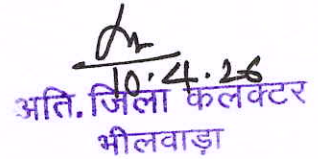 10.4.26
अति. जिला कलक्टर
भीलवाड़ा